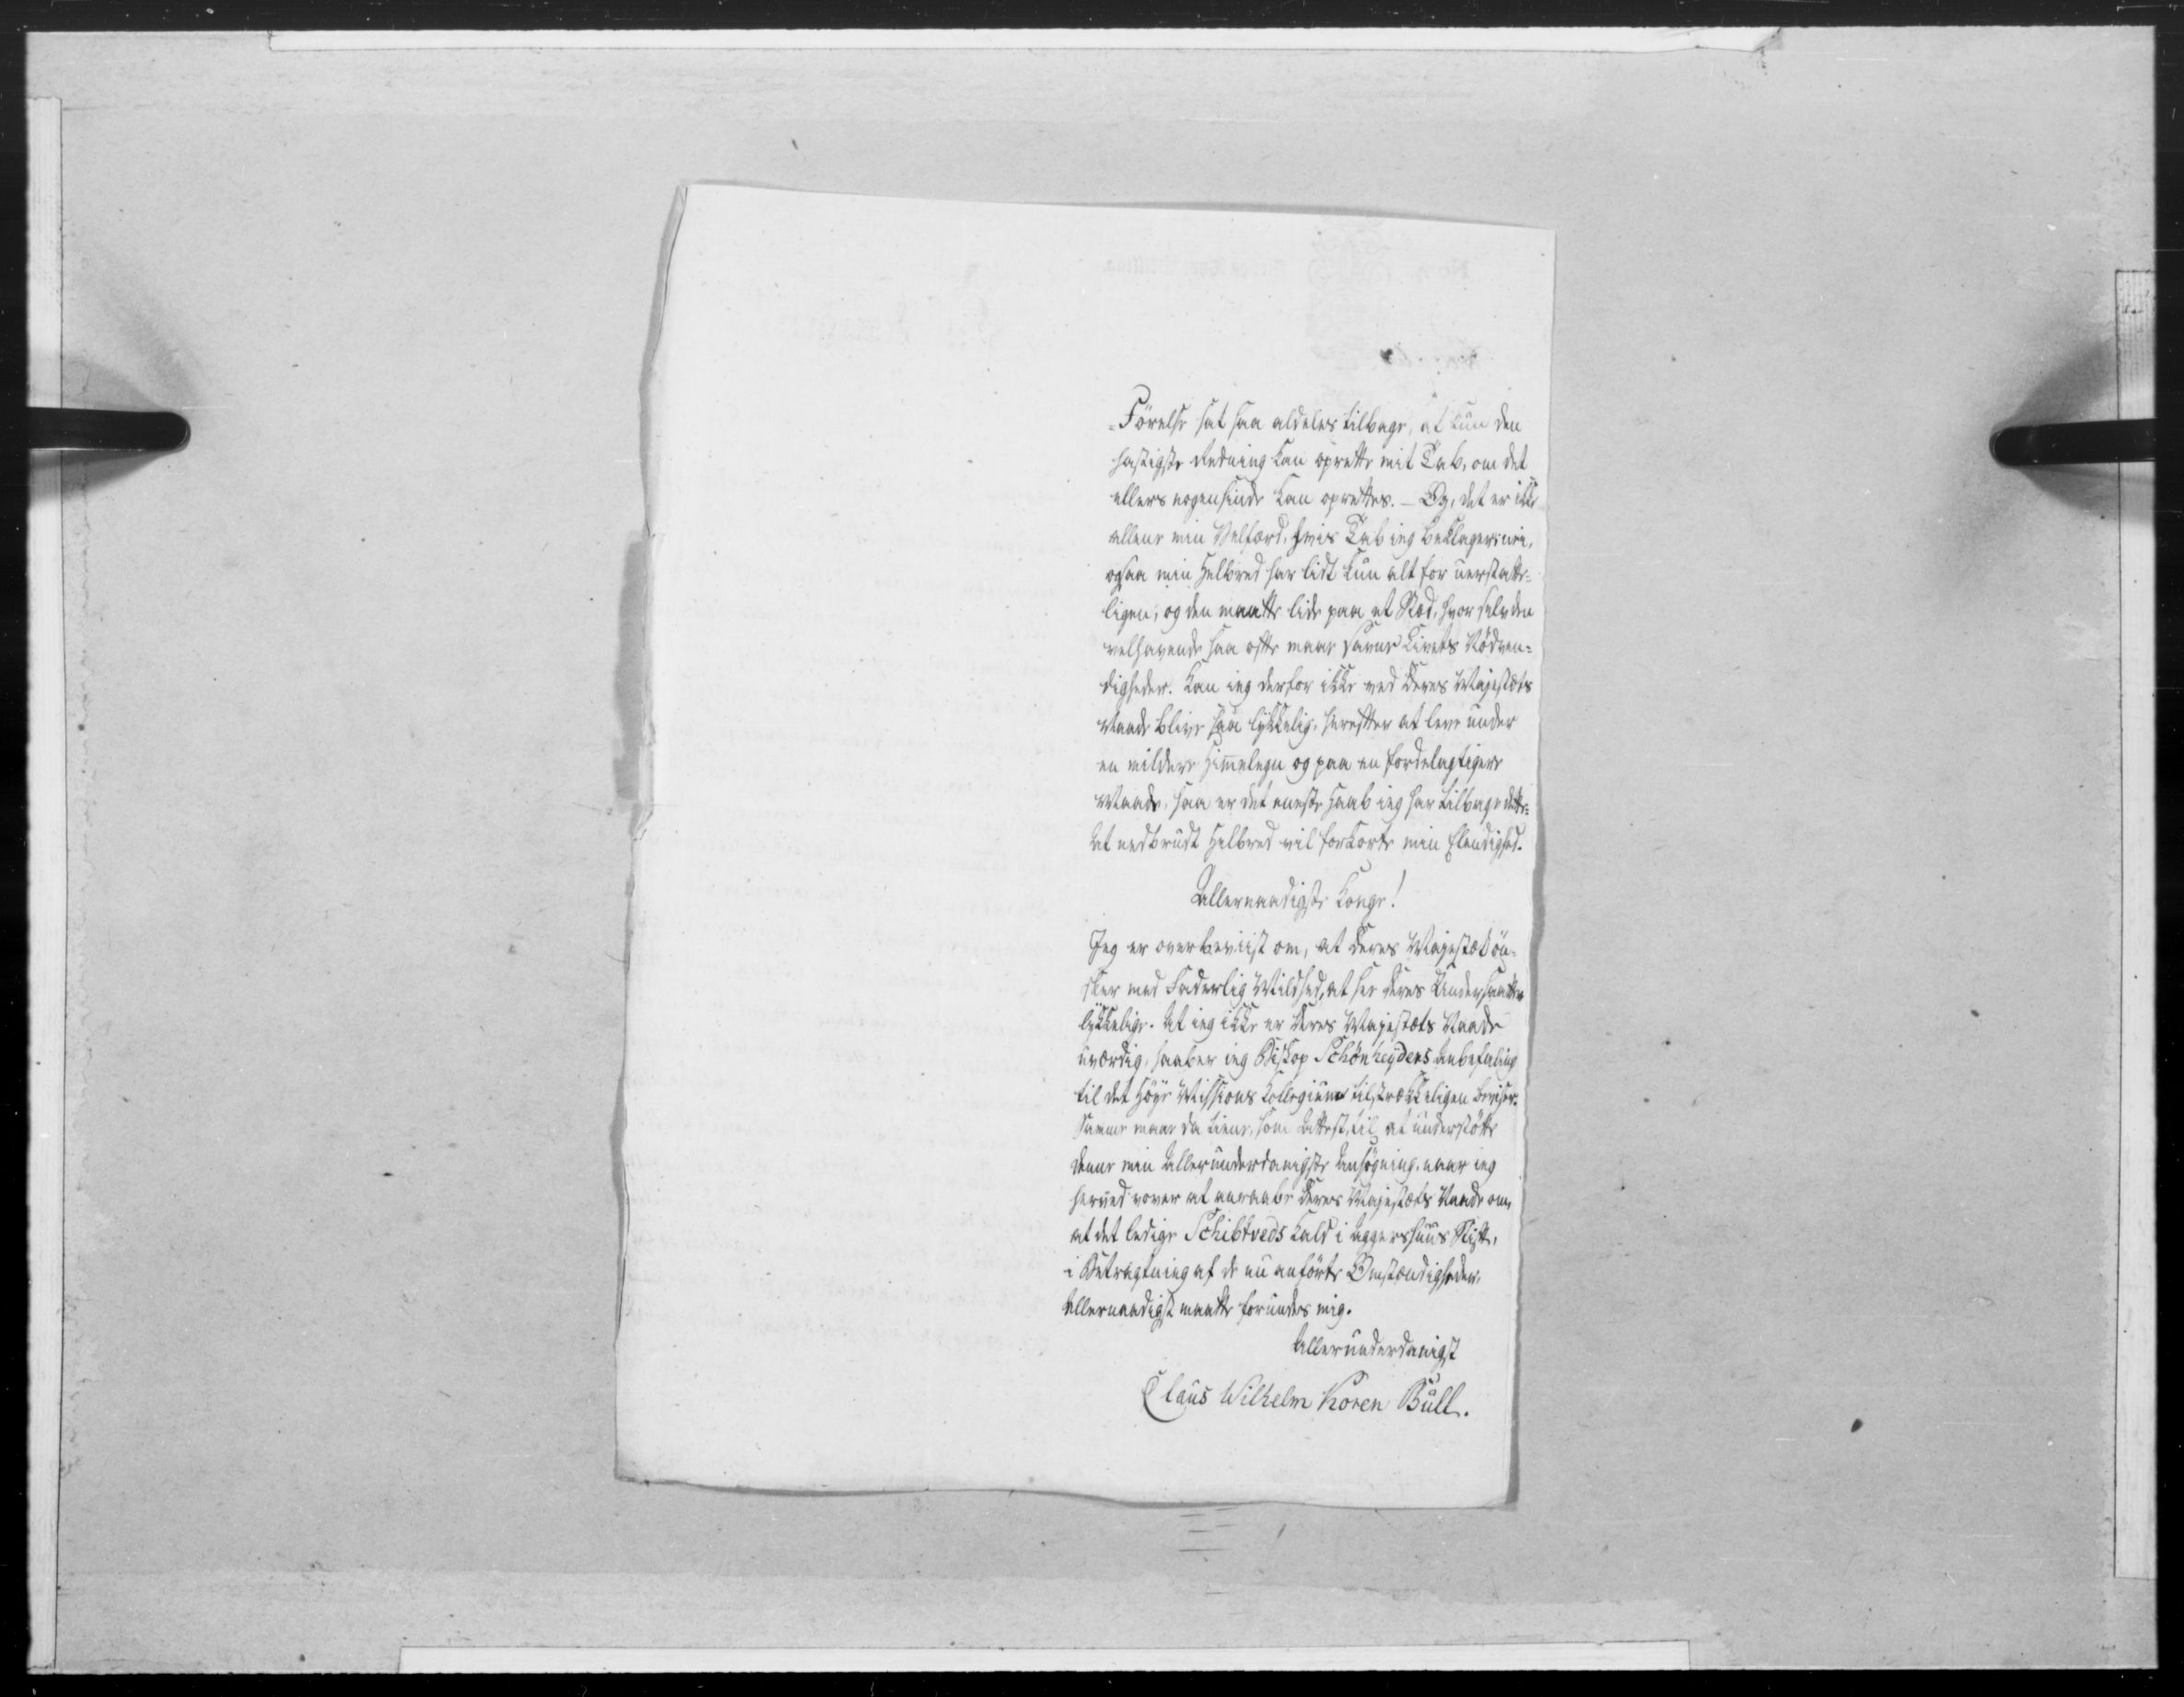 Förelse sat saa aldeles tilbage, at kun den
hastigste Redning kan oprette mit Tab, om det
ellers nogensinde kan oprettes. — Og, det er ikke
allene min Velfærd, hvis Tab ieg beklager: nei,
ogsaa min Helbred har lidt kun alt for uerstatte=
ligen; og den maatte lide paa et Stæd, hvor selv den
velhavende saa ofte maae savne Livets Nödven=
digheder. Kan ieg derfor ikke ved Deres Majestæts
Naade blive saa lykkelig, herefter at leve under
en mildere Himmelegn og paa en fordelagtigere
Maade, saa er det eneste Haab ieg har tilbage dette:
At nedbrudt Helbred vil forkorte min Elendighed.
Allernaadigste Konge!
Jeg er overbeviist om, at Deres Majestæt ön=
sker med Faderlig Mildhed, at see Deres Undersaatter
lykkelige. At ieg ikke er Deres Majestæts Naade
uværdig, haaber ieg Biskop Schönheyders Anbefaling
til det Höye Missions Collegium tilstrækkeligen beviser.
Samme maae da tiene, som Attest, til at understötte
denne min allerunderdanigste Ansögning, naar ieg
herved vover at anraabe Deres Majestæts Naade om,
at det ledige Schibtveds Kald i Aggershuus Stift,
i Betragtning af de nu anförte Omstændigheder,
allernaadigst maatte forundes mig.
Allerunderdanigst
Claus Wilhelm Koren Bull.